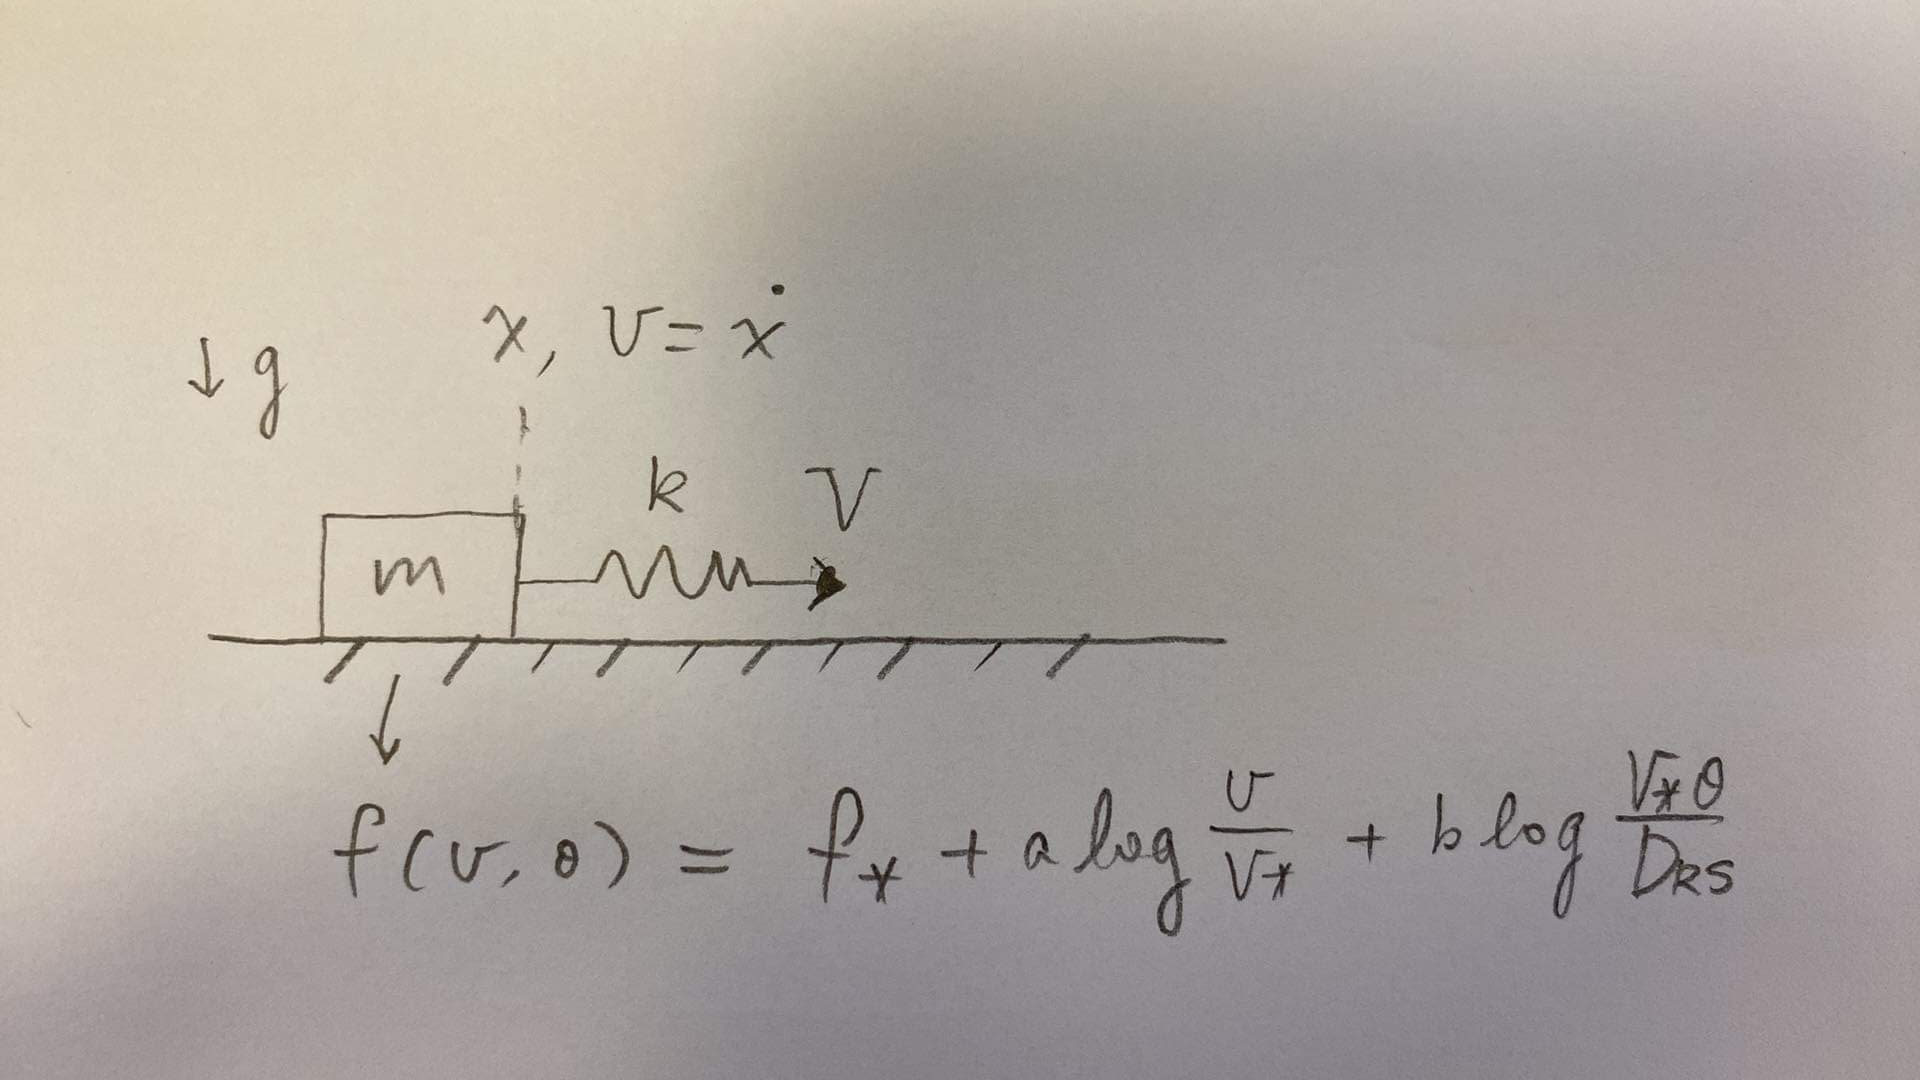 ↓ g
x, v = ẋ
k
V
m
↓
f(v, θ) = f* + a log v/V* + b log V*θ/DRS